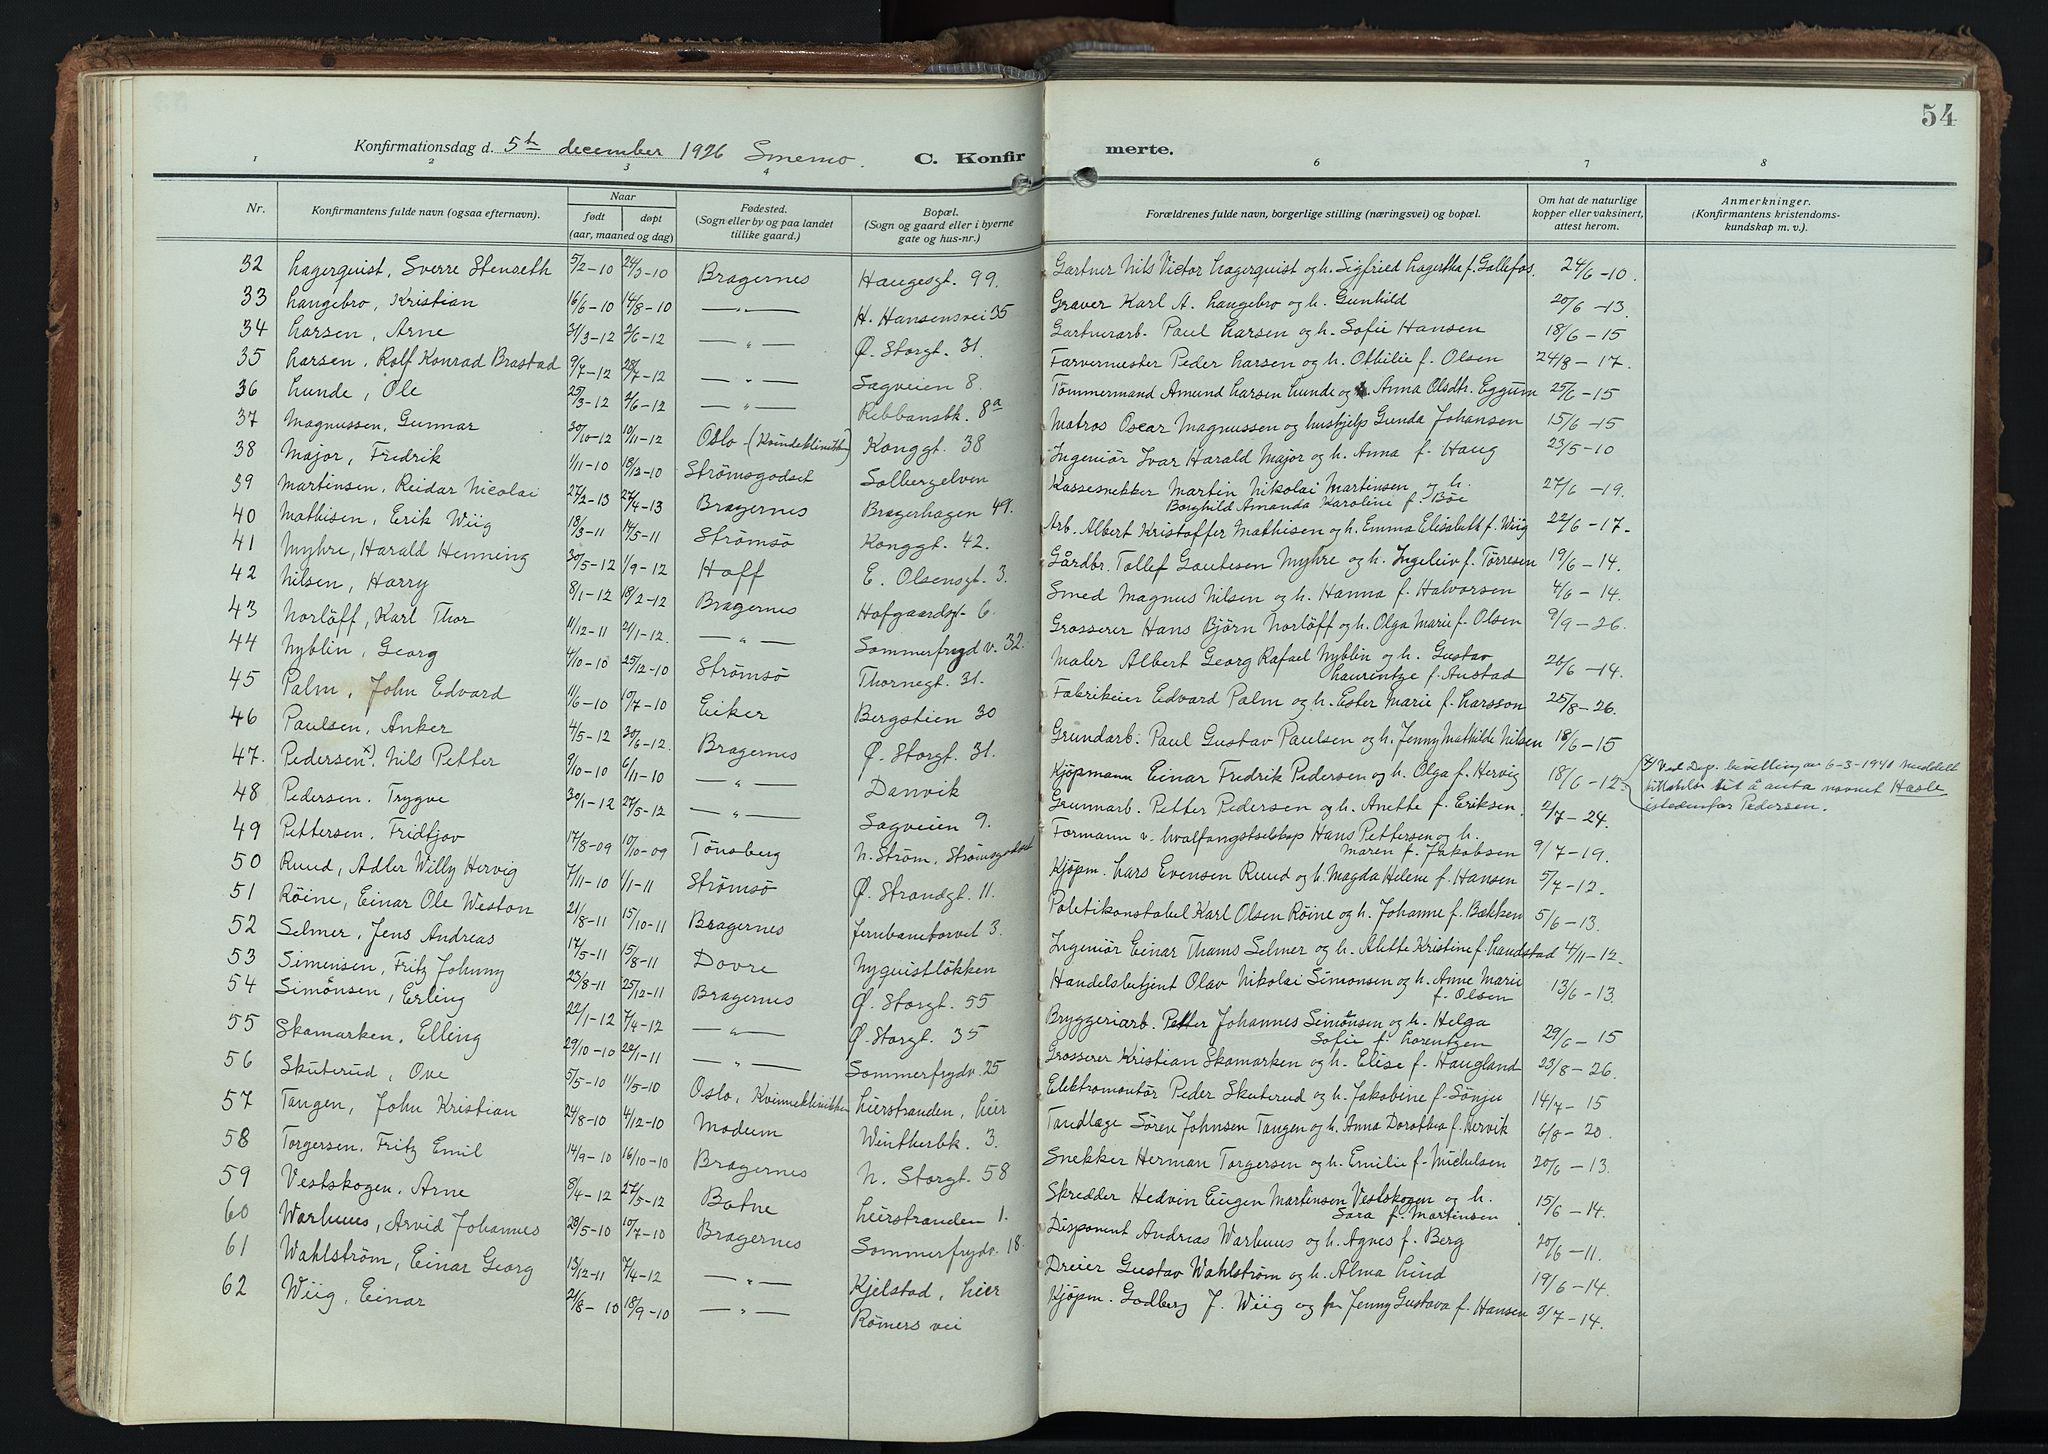 54
Konfirmationsdag d. 5te december 1926 Smemo. C. Konfirmerte.
1 2 3 4 6 7 8
Nr. Konfirmantens fulde navn (ogsaa efternavn). Naar født døpt (aar, maaned og dag) Fødested. (Sogn eller by og paa landet tillike gaard.) Bopæl. (Sogn og gaard eller i byerne gate og hus-nr.) Forældrenes fulde navn, borgerlige stilling (næringsvei) og bopæl. Om hat de naturlige kopper eller vaksinert, attest herom. Anmerkninger. (Konfirmantens kristendomskundskap m. v.).
32 Lagerquist, Sverre Stenseth 5/2-10 24/3-10 Bragernes Haugesgt. 99. Gartner Nils Victor Lagerquist og h. Sigfried Lagertha f. Gallefos. 24/6-10.
33 Langebro, Kristian 16/6-10 14/8-10 —„— H. Hansensvei 35 Graver Karl A. Langebro og h. Gunhild 20/6-13.
34 Larsen, Arne 31/3-12 2/6-12 —„— Ø. Storgt. 31. Gartnerarb. Paul Larsen og h. Sofie Hansen 18/6-15
35 Larsen, Rolf Konrad Brastad 9/7-12 28/7-12 —„— Sagveien 8. Farvermester Peder Larsen og h. Othilie f. Olsen 24/8-17.
36 Lunde, Ole 25/3-12 2/6-12 —„— Kibbansbk. 8a Tømmermand Amund Larsen Lunde og Anna Olsdtr. Eggum 25/6-15
37 Magnussen, Gunnar 30/10-12 10/11-12 Oslo (Kvindeklinikken) Konggt. 38 Matros Oscar Magnussen og hushjelp Gunda Johansen 15/6-15
38 Major, Fredrik 1/11-10 18/12-10 Strømsgodset Solbergelven Ingeniør Ivar Harald Major og h. Anna f. Haug 23/5-10
39 Martinsen, Reidar Nicolai 27/2-13 27/4-13 Bragernes Bragerhagen 49. Kassesnekker Martin Nikolai Martinsen og h. Borghild Amanda Karoline f. Bøe 27/6-19.
40 Mathisen, Erik Wiig 18/3-11 14/5-11 Strømsø Konggt. 42. Arb. Albert Kristoffer Mathisen og h. Emma Elisabeth f. Wiig 22/6-17-
41 Myhre, Harald Henning 30/5-12 1/9-12 Hoff E. Olsensgt. 3. Gårdbr. Tollef Gautesen Myhre og h. Ingeleiv f. Tørresen 19/6-14.
42 Nilsen, Harry 8/1-12 18/2-12 Bragernes Hofgaardsgt. 6. Smed Magnus Nilsen og h. Hanna f. Halvorsen 4/6-14.
43 Norløff, Karl Thor 11/12-11 21/1-12. —„— Sommerfryd v. 32. Grosserer Hans Bjørn Norløff og h. Olga Marie f. Olsen 9/9-26.
44 Nyblin, Georg 4/10-10 25/12-10 Strømsø Thornegt. 31. Maler Albert Georg Rafael Nyblin og h. Gustav Laurentze f. Austad 20/6-14.
45 Palm, John Edvard 11/6-10 10/7-10 Eiker Bergstien 30 Fabrikeier Edvard Palm og h. Ester Marie f. Larsson 25/8-26.
46 Paulsen, Anker 4/5-12 30/6-12. Bragernes Ø. Storgt. 31. Grundarb. Paul Gustav Paulsen og h. Jenny Mathilde Nilsen 18/6-15
47. Pedersen x), Nils Petter 9/10-10 6/11-10 —„— Danvik Kjøpmann Einar Fredrik Pedersen og h. Olga f. Hervig 18/6-12 x) Ved Dep. bevilling av 6-3-1940 meddelt tillatelse til å anta navnet Hasle istedenfor Pedersen.
48 Pedersen. Trygve 30/1-12 27/5-12 —„— Sagveien 9. Grunnarb. Petter Pedersen og h. Anette f. Eriksen 2/7-24.
49 Pettersen. Fridtjov 17/8-09 10/10-09 Tønsberg N. Strøm, Strømsgodset Formann v. hvalfangstselskap Hans Pettersen og h. Maren f. Jakobsen 9/7-19.
50 Ruud, Adler Willy Hervig 7/11-10 1/1-11 Strømsø Ø. Strandgt. 11. Kjøpm. Lars Evensen Ruud og h. Magda Helene f. Hansen 5/7-12.
51 Røine, Einar Ole Weston 21/8-11 15/10-11 Bragernes Jernbanetorvet 3. Politikonstabel Karl Olsen Røine og h. Johanne f. Bækken 5/6-13.
52 Selmer, Jens Andreas 17/5-11 15/8-11 Dovre Nyquistløkken Ingeniør Einar Thams Selmer og h. Alette Kristine f. Landstad 4/11-12.
53 Simensen, Fritz Johnny 23/8-11 25/12-11 Bragernes Ø. Storgt. 55 Handelsbetjent Olav Nikolai Simonsen og h. Anne Marie f. Olsen 13/6-13.
54 Simønsen, Erling 22/1-12 7/4-12 —„— Ø. Storgt. 35 Bryggeriarb. Petter Johannes Simønsen og h. Helga Sofie f. Lorentzen 29/6-15
55 Skamarken, Elling 29/10-10 22/1-11 —„— Sommerfrydv. 25 Grosserer Kristian Skamarken og h. Elise f. Haugland 23/8-26.
56 Skuterud, Ove 5/5-10 11/5-10 Oslo, Kvinneklinikken Lierstranden, Lier Elektromontør Peder Skuterud og h. Jakobine f. Sønju 14/7-15
57 Tangen, John Kristian 24/8-10 4/12-10 Modum Wintherbk. 3. Tandlæge Sören Johnsen Tangen og h. Anna Dorothea f. Hervik 6/8-20.
58 Torgersen. Fritz Emil 14/9-10 16/10-10 Bragernes N. Storgt. 58 Snekker Herman Torgersen og h. Emilie f. Michelsen 20/6-13.
59 Vestskogen. Arne 8/4-12 27/5-12 Botne Lierstranden 1. Skredder Hedvin Eugen Martinsen Vestskogen og h. Sara f. Martinsen 15/6-14.
60 Warhuus, Arvid Johannes 28/5-10 10/7-10 Bragernes Sommerfrydv. 18. Disponent Andreas Warhuus og h. Agnes f. Berg 20/6-11.
61 Wahlstrøm, Einar Georg 13/12-11 7/4-12 —„— Kjelstad, Lier Dreier Gustav Wahlstrøm og h. Alma Lind 19/6-14.
62 Wiig, Einar 21/8-10 18/9-10 —„— Rømers vei Kjøpm. Godberg J. Wiig og fr. Jenny Gustava f. Hansen 3/7-14.